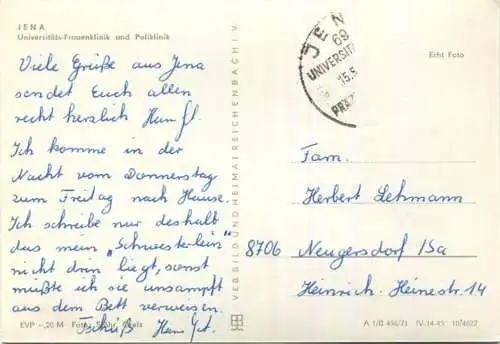 JENA
Universitäts-Frauenklinik und Poliklinik
Viele Grüße aus Jena
sendet Euch allen
recht herzlich
Ich komme in der
Nacht vom Donnerstag
zum Freitag nach Hause.
Ich schreibe nur deshalb
das mein „Schwesterlein"
nicht drin liegt, sonst
müßte ich sie unsanft
aus dem Bett verweisen.
Tschüß
EVP –,20 M Foto:
VEB BILD UND HEIMAT REICHENBACH I. V.
JEN
69
UNIVERSIT
15.5
Echt Foto
Fam.
Herbert Lehmann
8706 Neugersdorf /Sa
Heinrich-Heinestr. 14
A 1/B 456/71 IV-14-45 10/4622